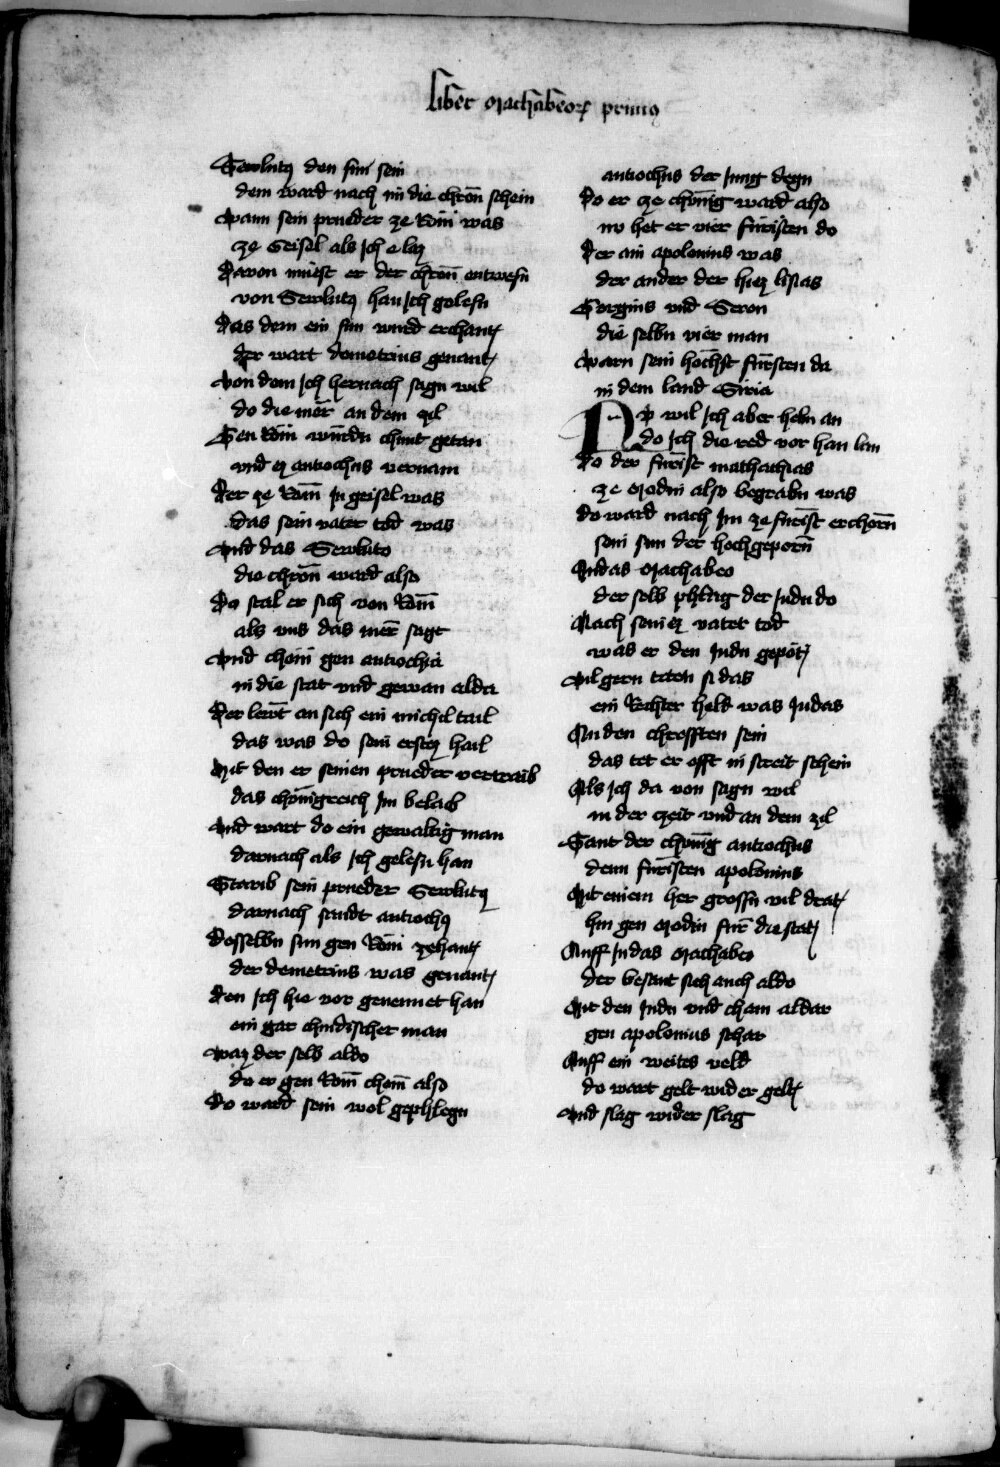 Liber Machabeorum primus
Sewlutz den sun sein
dem ward nach im die chron schein
Wann sein prueder ze Rom was
ze Geisel als ich e las
Davon muest er der chron entwesn
von Sewlutz han ich gelesn
Das dem ein sun ward erchant
der wart demetrius genant
Von dem ich hernach sagn wil
do die mer an dem zil
Gen Rom wurdn chunt getan
und ez antiochus vernam
Der ze Rom in geisel was
das sein vater tod was
Und das Sewluto
die chron ward also
Do stal er sich von Rom
als uns das mer sagt
Und chom gen antiochia
in die stat und gewan alda
Der lewt an sich ein michel tail
das was do sein erstez hail
Mit den er seinen prueder vertraib
das chonigreich im belaib
Und wart do ein gewaltig man
darnach als ich gelesn han
Starib sein prueder Sewlutz
darnach sandt antiochus
Desselbn sun gen Rom zehant
der demetrius was genant
Den ich hie vor genennet han
ein gar chindischer man
Waz der selb aldo
do er gen Rom chom also
Do ward sein wol gephlegn
antiochus der jung degn
Do er ze chonig ward also
nu het er vier fursten do
Der ain apolonius was
der ander der hiez lisias
Gorgius und Seron
die selbn vier man
Warn sein hochst fursten da
in dem land Siria
Nu wil ich aber hebn an
do ich die red vor han lan
Do der furst mathathias
ze Modin also begrabn was
Do ward nach im ze furst erchorn
sein sun der hochgeporn
Judas Machabeo
der selb phlag der judn do
Nach seinez vater tod
was er den judn gepot
Vil gern taten si das
ein Rechter held was judas
An den chrefften sein
das tet er offt in streit schein
Als ich da von sagn wil
in der zeit und an dem zil
Sant der chonig antiochus
denn fursten apolonius
Mit einem her grossn vil drat
hin gen Modin fur die stat
Auff judas Machabeo
der besant sich auch aldo
Mit den judn und cham aldar
gen apolonius schar
Auff ein weites veld
do wart gelt wider gelt
Und slag wider slag